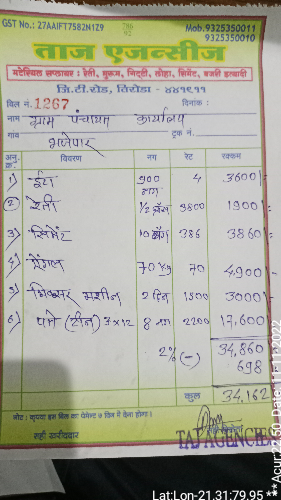 GST No.: 27AAIFT7582N1Z9
Mob.9325350011
9325350010
ताज एजन्सीज
मटेरियल सप्लायर : रेती, मुरूम, गिट्टी, लोहा, सिमेंट, बजरी इत्यादी
जि.टी.रोड, तिरोडा - ४४१९११
बिल नं. 1267 दिनांक :
नाम ग्राम पंचायत कार्यालय
गांव भजेपार ट्रक नं.
अनु. क्र. विवरण नग रेट रक्कम
1) ईटा 900 नग 4 3600/-
2) रेती 1/2 ब्रॉस 3800 1900/-
3) सिमेंट 10 बॅग 386 3860/-
4) अँगल 70 kg 70 4900/-
5) मिक्सर मशीन 2 दिन 1500 3000/-
6) पत्रे (टीन) 3x12 8 नग 2200 17,600/-
34,860
2% (-) 698
कुल 34,162
नोट : कृपया इस बिल का पेमेन्ट 8 दिन में देना होगा।
सही खरीददार
TAJ AGENCIES
Lat:Lon-21.31:79.95